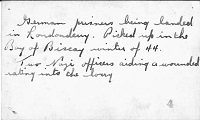 German prisners being landed
in Londonderry. Picked up in the
Bay of Biscay winter of 44.
Two Nazi officers aiding a wounded
rating into the lorry